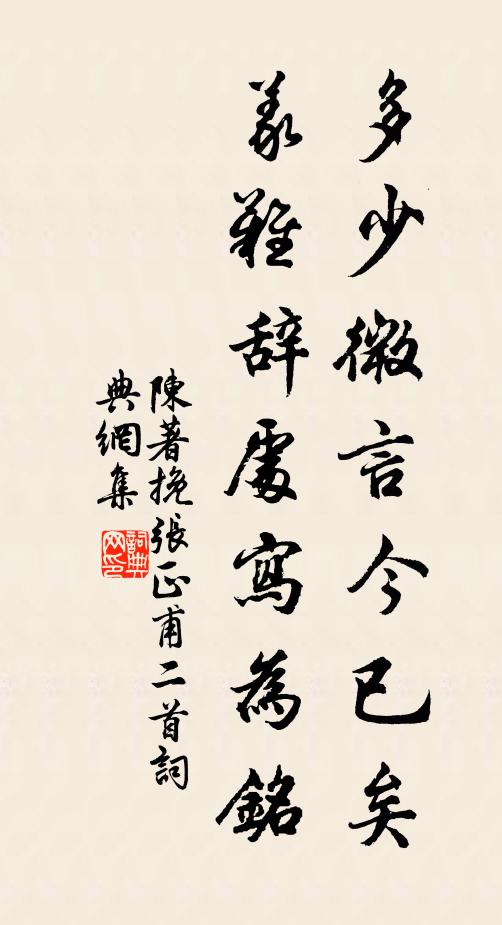 多少微言今已矣
義難辞處寫為銘
陳著挽張正甫二首詞
典網集
詞典网印